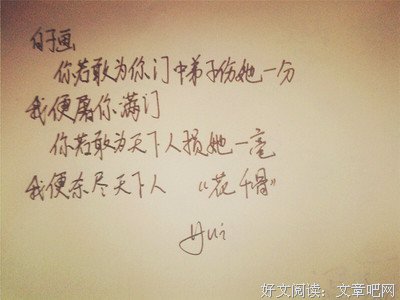 白子画
你若敢为你门中弟子伤她一分
我便屠你满门
你若敢为天下人损她一毫
我便杀尽天下人 “花千骨”
yui
好文阅读：文章吧网